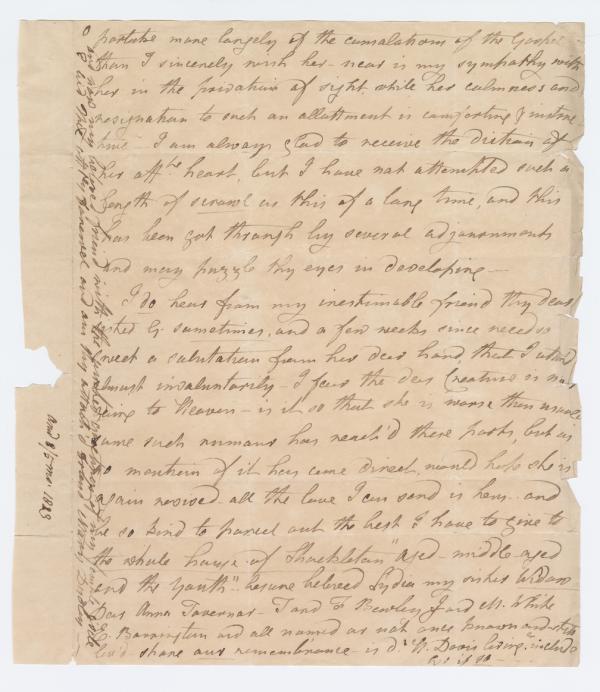 partake more largely of the consolations of the Gospel
than I sincerely wish her - near is my sympathy with
her in the privation of sight while her calmness and
resignation to such an allottment is comforting & instruc
tive - I am always glad to receive the diction of
her aff.te heart, but I have not attempted such a
length of scrawl as this of a long time, and this
has been got through by several adjournments
and may puzzle thy eyes in developing -
I do hear from my inestimable friend thy dear
sometimes, and a few weeks since
sweet a salutation from her dear hand, that I
almost involuntarily - I fear the dear Creature is
going to Heaven - is it so that she is worse than usual
some such rumour has reach'd these parts, but as
no mention of it has come direct, would hope she is
again revived - all the love I can send is hers - and
be so kind to parcel out the best I have to give to
the whole house of Shackleton "aged - middle aged
and the Youth" - beloved Lydia my wishes
Dear Anna Taverner - T and E Bewley J and M. White
E. Barrington and all named as not once known and
lov'd - share our remembrance - is d. "N. Davis living" include
and now my beloved friend with the
farewel and am thy attach'd friend Mary Dudley -
and 8/5mo. 1823